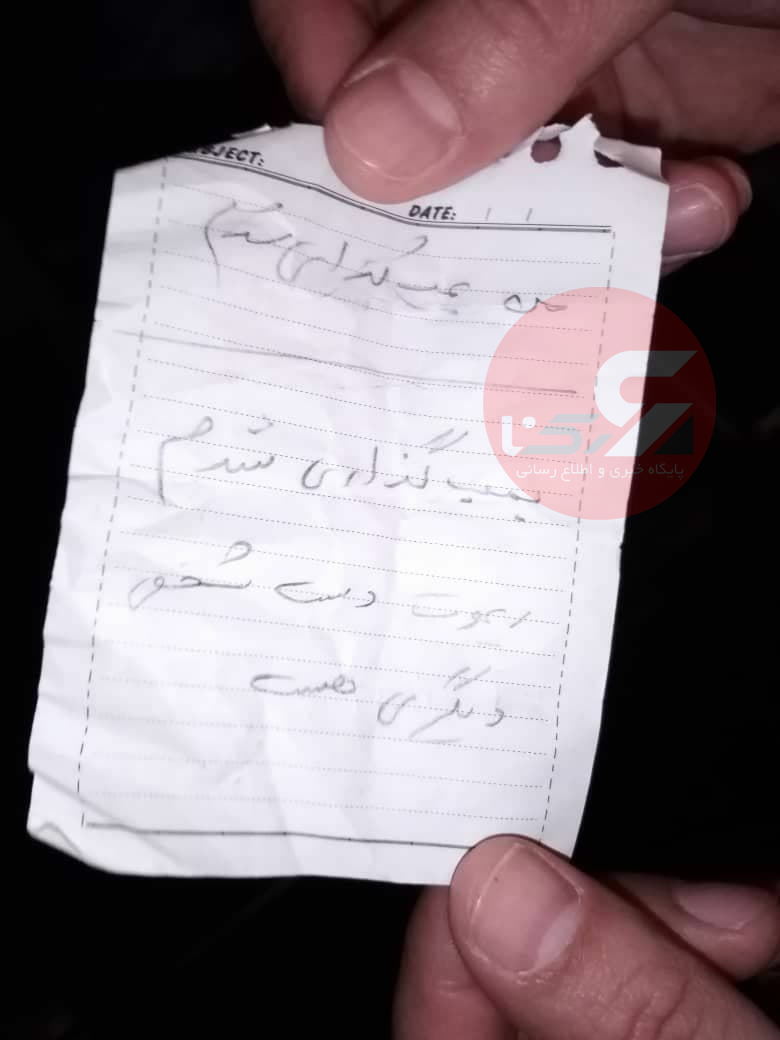 SUBJECT:
DATE: / /
من بمب گذاری شدم
بمب گذاری شدم
ریموت دست شخص
دیگری هست
رکنا
پایگاه خبری و اطلاع رسانی